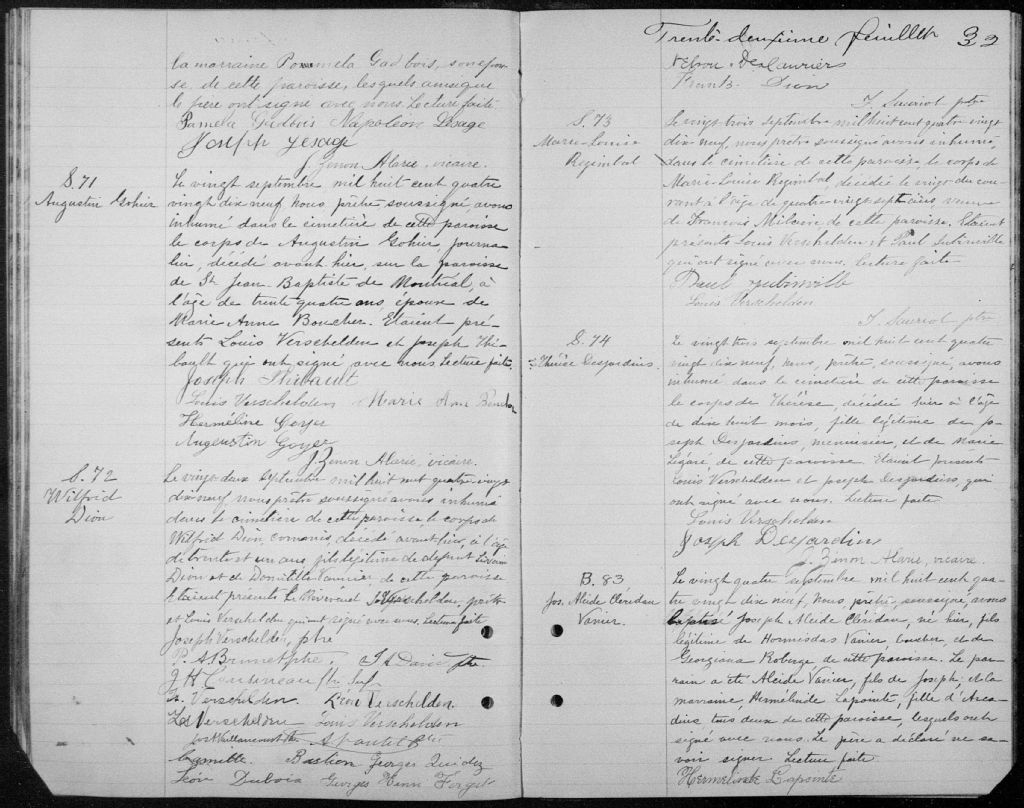 la marraine Pamela Gadbois, son épou-
se, de cette paroisse, lesquels ainsi que
le père ont signé avec nous. Lecture faite
Pamela Gadbois Napoléon Lesage
Joseph Lesage
J. Zénon Alarie, vicaire.
S. 71
Augustin Gohier
Le vingt septembre mil huit cent quatre
vingt dix neuf, nous, prêtre soussigné, avons
inhumé dans le cimetière de cette paroisse
le corps de Augustin Gohier, journa-
lier, décédé avant hier, sur la paroisse
de St Jean Baptiste de Montréal, à
l'âge de trente quatre ans, époux de
Marie Anne Boucher. Etaient pré-
sents Louis Verschelden et Joseph Thi-
bault qui ont signé avec nous. Lecture faite.
Joseph Thibault
Louis Verschelden Marie Ann Boucher
Herméline Goyer
Augustin Goyer
J. Zénon Alarie, vicaire.
S. 72
Wilfrid
Dion
Le vingt deux septembre mil huit cent quatre vingt
dix neuf, nous prêtre soussigné avons inhumé
dans le cimetière de cette paroisse le corps de
Wilfrid Dion, commis, décédé avant hier, à l'âge
de trente et un ans, fils légitime de défunt
Dion et de Domitille Vannier de cette paroisse
Etaient présents le Révérend Verschelden, prêtre
et Louis Verschelden qui ont signé avec nous. Lecture faite
Joseph Verschelden, ptre
P. A. Brunet ptre. J A
J H ptre Sup
Verschelden. Léon Verschelden.
Verschelden Louis Verschelden
Jos A Vaillancourt
Camille Bastien Georges
Léon Dubois Georges Henri Forget
Trente-deuxième feuillet 32
Nelson Deslauriers
Frank Dion
ptre
S. 73
Marie-Louise
Regimbal
Le vingt trois septembre mil huit cent quatre vingt
dix neuf, nous prêtre soussigné avons inhumé,
dans le cimetière de cette paroisse, le corps de
Marie-Louise Regimbal, décédée le vingt du cou-
rant à l'âge de quatre vingt sept ans, veuve
de François de cette paroisse. Etaient
présents Louis Verschelden et Paul Jubinville
qui ont signé avec nous. Lecture faite
Paul Jubinville
Louis Verschelden
ptre
S. 74
Thérèse Desjardins.
Le vingt trois septembre mil huit cent quatre
vingt dix neuf, nous, prêtre, soussigné, avons
inhumé dans le cimetière de cette paroisse
le corps de Thérèse, décédée hier à l'âge
de dix huit mois, fille légitime de Jo-
seph Desjardins, menuisier, et de Marie
Légaré, de cette paroisse. Etaient présents
Louis Verschelden et Joseph Desjardins, qui
ont signé avec nous. Lecture faite.
Louis Verschelden
Joseph Desjardins
J. Zénon Alarie, vicaire.
B. 83
Jos. Alcide Cléridan
Vanier.
Le vingt quatre septembre mil huit cent qua-
tre vingt dix neuf, nous, prêtre, soussigné, avons
baptisé Joseph Alcide Cléridan, né hier, fils
légitime de Hormisdas Vanier, boucher, et de
Georgiana Roberge de cette paroisse. Le par-
rain a été Alcide Vanier, fils de Joseph, et la
marraine, Hermélinde Lapointe, fille d'Arca-
dius tous deux de cette paroisse, lesquels ont
signé avec nous. Le père a déclaré ne sa-
voir signer. Lecture faite
Hermelinde Lapointe